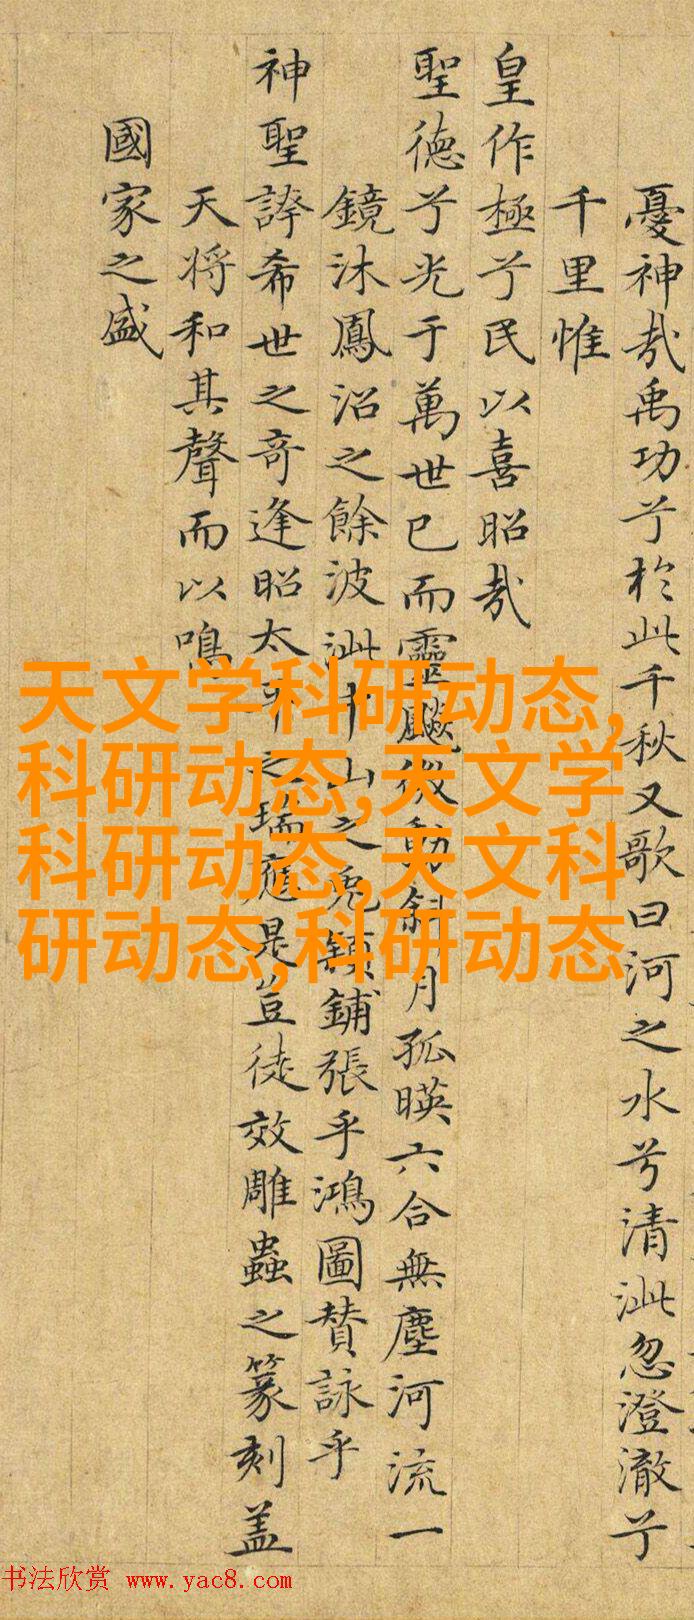 憂神哉禹功兮於此千秋又歌曰河之水兮清泚忽澄澈兮
千里惟
皇作極兮民以喜昭哉
聖德兮光于萬世已而靈飈微動斜月孤暎六合無塵河流一
鏡沐鳳沼之餘波泚中山之兔穎鋪張乎鴻圖賛詠乎
神聖誇希世之奇逢昭太平之瑞應是豈徒效雕蟲之篆刻盖
天将和其聲而以鳴
國家之盛
天文学科研动态,
科研动态,天文学
科研动态,天文科
研动态,科研动态
书法欣赏 www.yac8.com